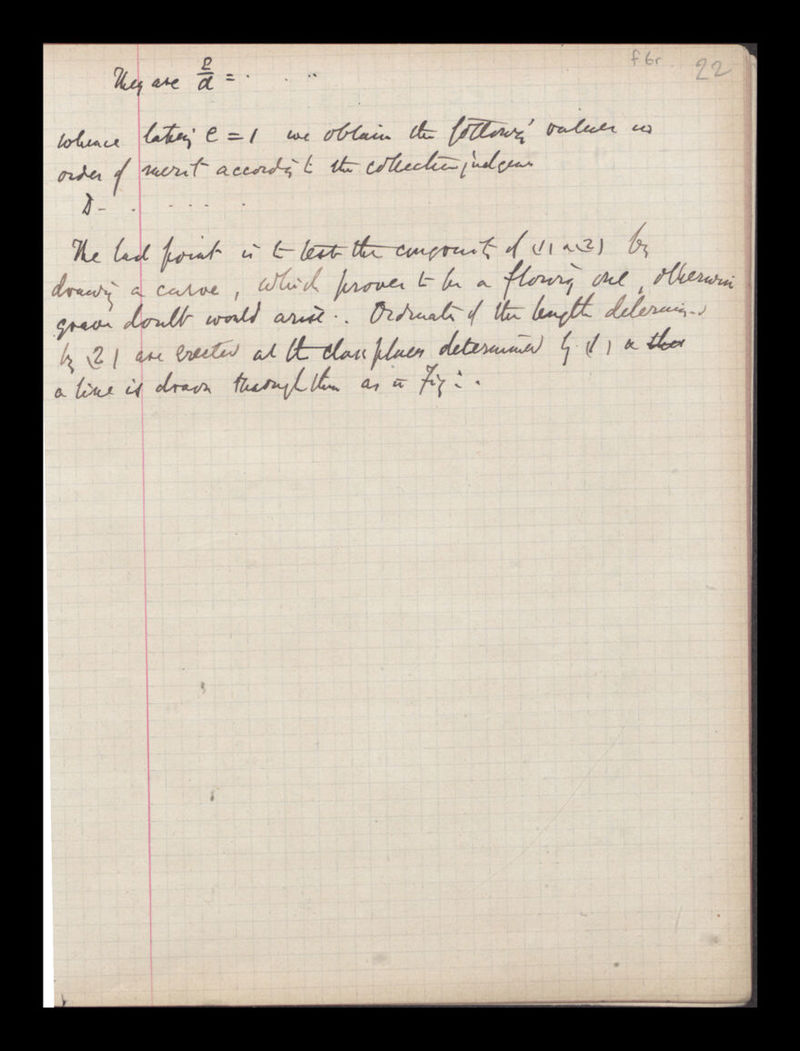 f6r. 22
They are e/d = . . ..
whence taking e = 1 we obtain the following values in
order of merit according to the collective judgem
D - . . . . .
The last point is to test the congruity of (1) & (2) by
drawing a curve, which proves to be a flowing one, otherwise
grave doubt would arise. Ordinates of the length determined
by (2) are erected at the class places determined by (1) a
a line is drawn through them as in Fig: .